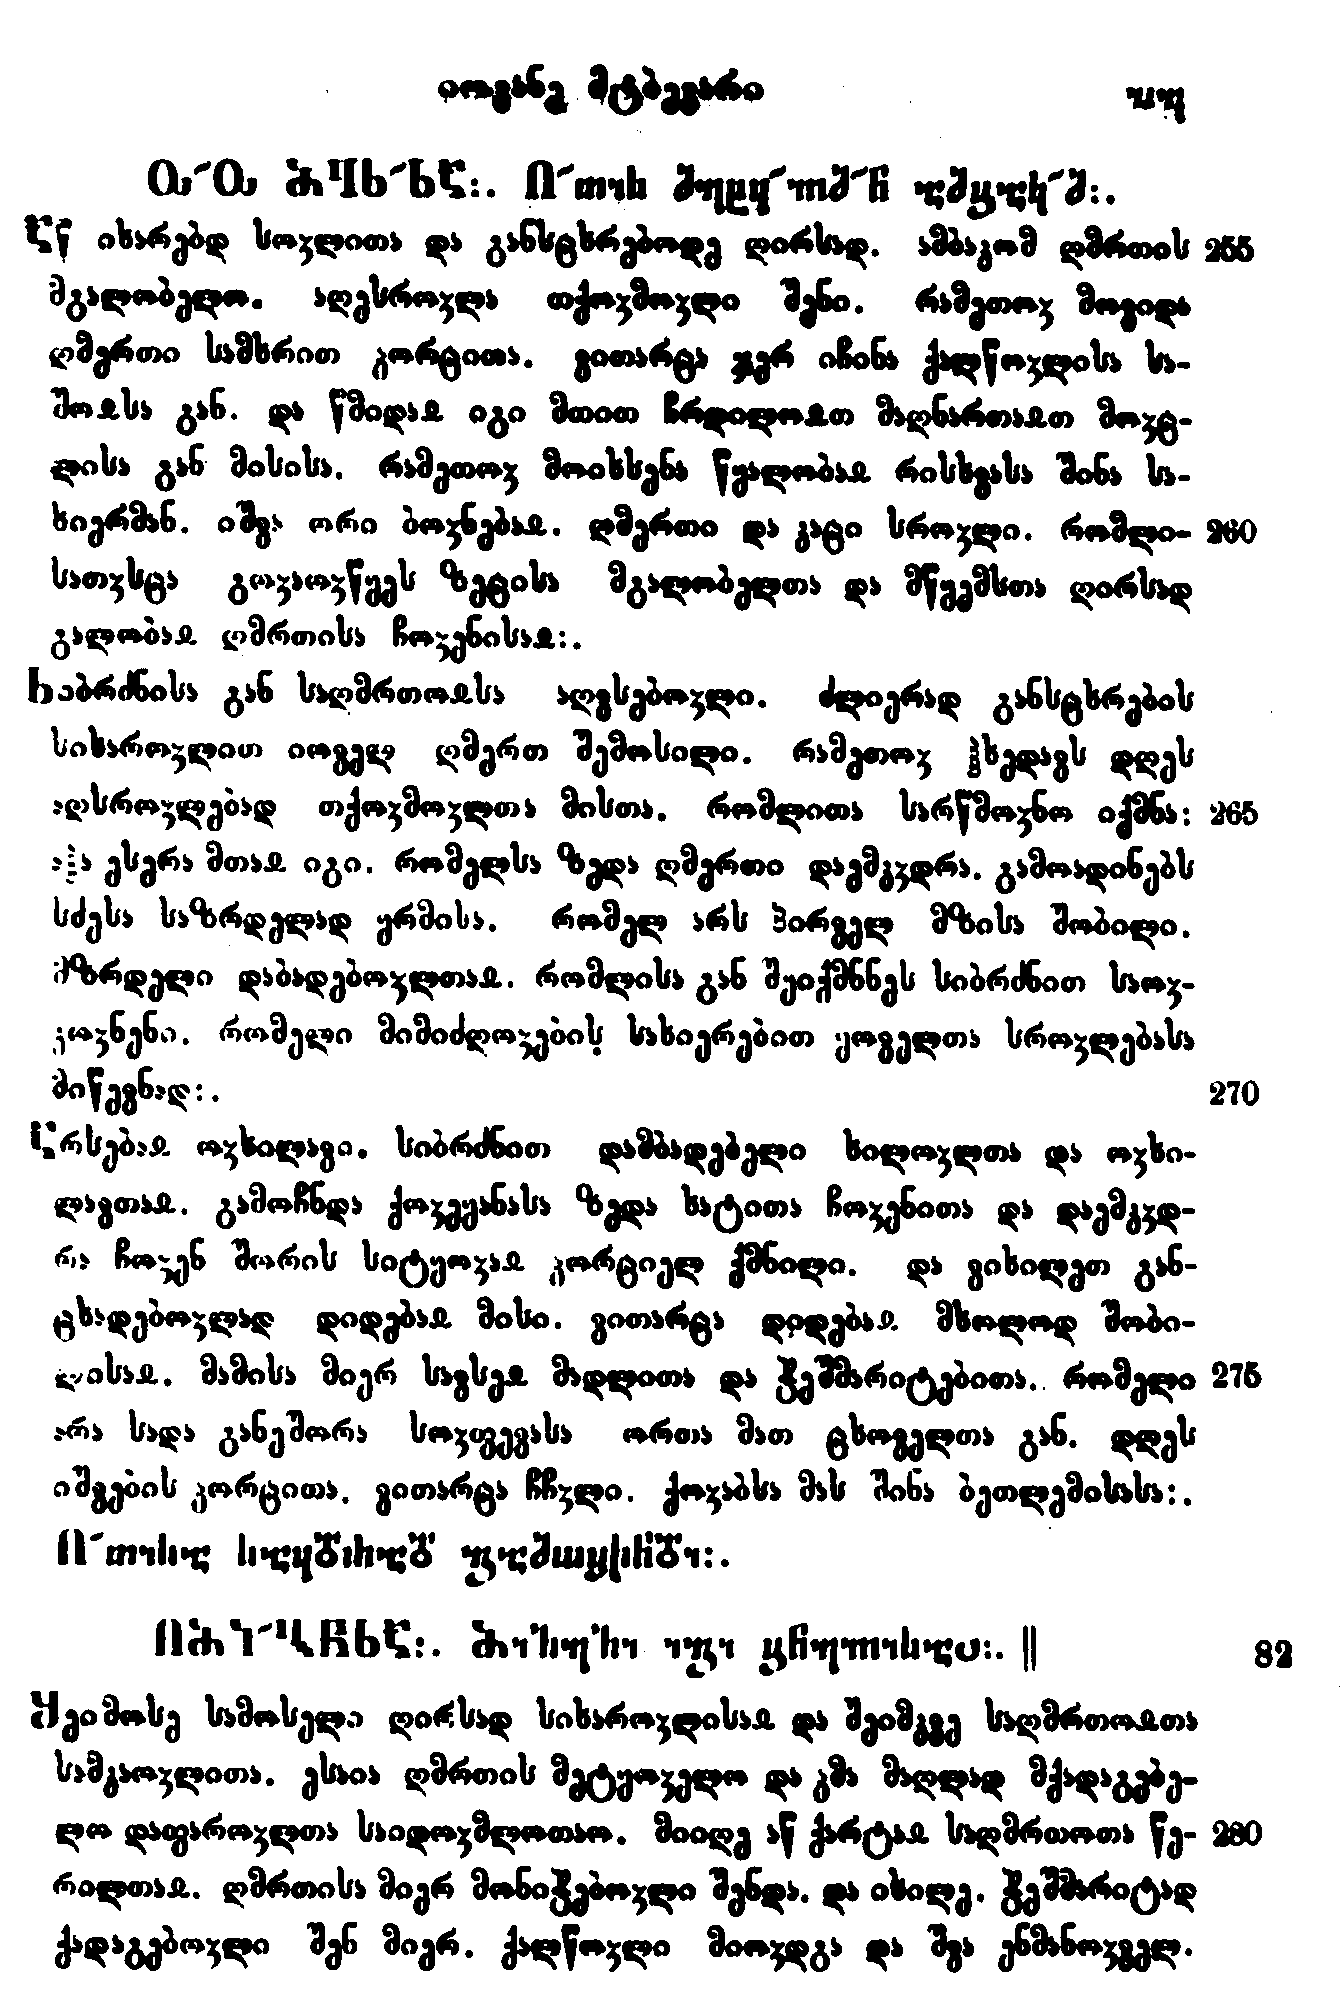 იოვანე მტბევარი
აწ იხარებდ სოჳლითა და განსცხრებოდე ღირსად. ამბაკომ ღმრთის 255
მგალობელო. აღესროჳლა თქოჳმოჳლი შენი. რამეთოჳ მოვიდა
ღმერთი სამხრით კორცითა. ვითარცა ჯერ იჩინა ქალწოჳლისა სა-
შოჲსა გან. და წმიდაჲ იგი მთით ჩრდილოჲთ მაღნართაჲთ მოჳც-
ლისა გან მისისა. რამეთოჳ მოიხსენა წყალობაჲ რისხვასა შინა სა-
ხიერმან. იშვა ორი ბოჳნებაჲ. ღმერთი და კაცი სროჳლი. რომლი- 260
სათჳსცა გოჳაოჳწყეს ზეცისა მგალობელთა და მწყემსთა ღირსად
გალობაჲ ღმრთისა ჩოჳენისაჲ:.
სიბრძნისა გან საღმრთოჲსა აღვსებოჳლი. ძლიერად განსცხრების
სიხაროჳლით იოველ ღმერთ შემოსილი. რამეთოჳ ჰხედავს დღეს
აღსროჳლებად თქოჳმოჳლთა მისთა. რომლითა სარწმოჳნო იქმნა: 265
აჰა ესერა მთაჲ იგი. რომელსა ზედა ღმერთი დაემკჳდრა. გამოადინებს
სძესა საზრდელად ყრმისა. რომელ არს პირველ მზისა შობილი.
მზრდელი დაბადებოჳლთაჲ. რომლისა გან შეიქმნნეს სიბრძნით საოჳ-
კოჳნენი. რომელი მიმიძღოჳების სახიერებით ყოველთა სროჳლებასა
მიწევნად:. 270
არსებაჲ ოჳხილავი. სიბრძნით დამბადებელი ხილოჳლთა და ოჳხი-
ლავთაჲ. გამოჩნდა ქოჳეყანასა ზედა ხატითა ჩოჳენითა და დაემკჳდ-
რა ჩოჳენ შორის სიტყოჳაჲ კორციელ ქმნილი. და ვიხილეთ გან-
ცხადებოჳლად დიდებაჲ მისი. ვითარცა დიდებაჲ მხოლოდ შობი-
ლისაჲ. მამისა მიერ სავსეჲ მადლითა და ჭეშმარიტებითა. რომელი 275
არა სადა განეშორა სოჳფევასა ორთა მათ ცხოველთა გან. დღეს
იშვების კორცითა. ვითარცა ჩჩჳლი. ქოჳაბსა მას შინა ბეთლემისასა:.
82
შეიმოსე სამოსელი ღირსად სიხაროჳლისაჲ და შეიმკვე საღმრთოჲთა
სამკაოჳლითა. ესაია ღმრთის მეტყოჳელო და კმა მაღლად მქადაგებე-
ლო დაფაროჳლთა საიდოჳმლოთაო. მიიღე აწ ქარტაჲ საღმრთოთა წე- 280
რილთაჲ. ღმრთისა მიერ მონიჭებოჳლი შენდა. და იხილე. ჭეშმარიტად
ქადაგებოჳლი შენ მიერ. ქალწოჳლი მიოჳდგა და შვა ენმანოჳველ.